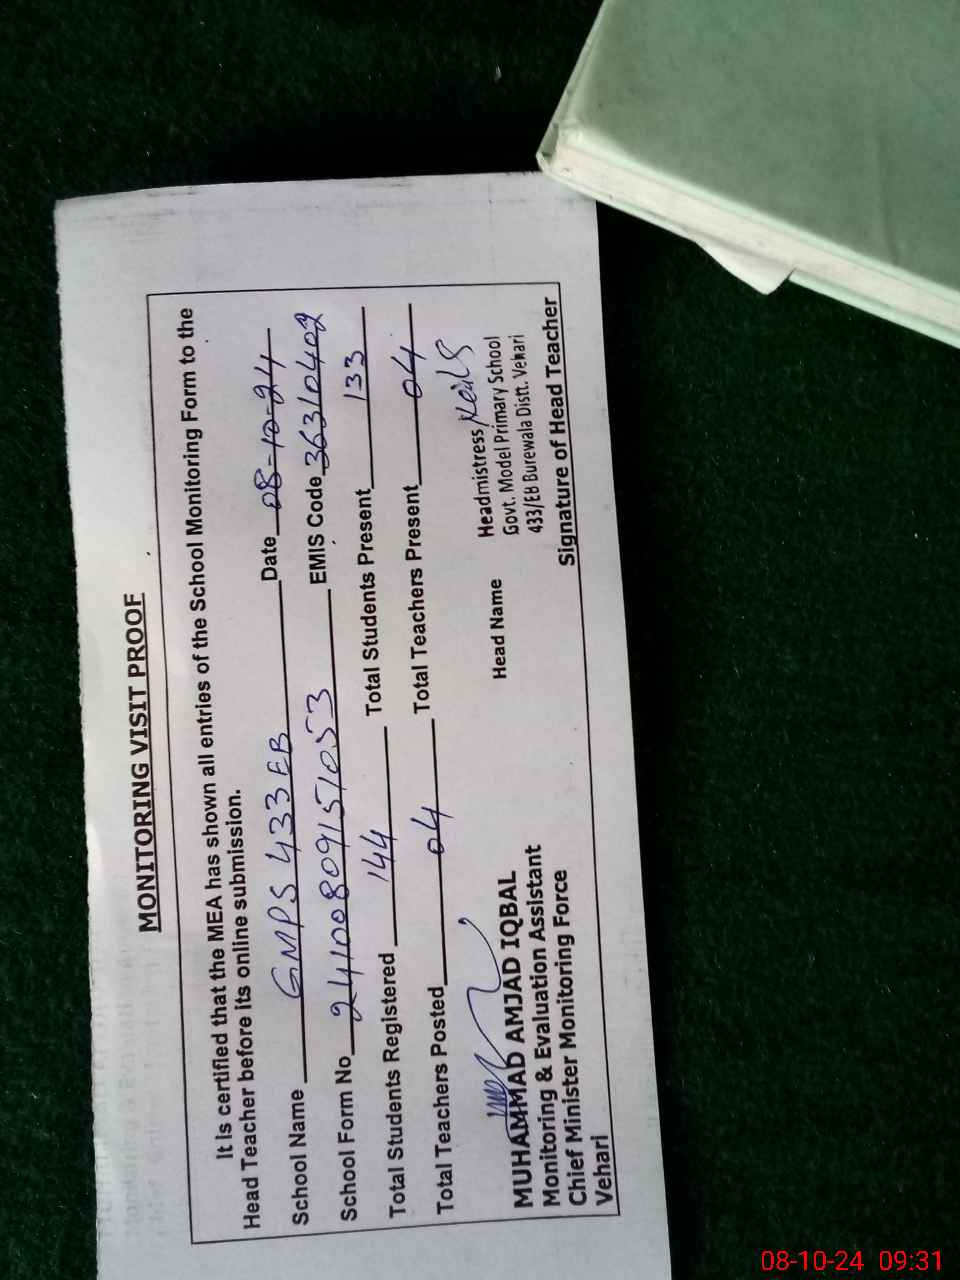 MONITORING VISIT PROOF
It is certified that the MEA has shown all entries of the School Monitoring Form to the
Head Teacher before its online submission.
School Name GMPS 433 EB Date 08-10-24
School Form No 24100809151053 EMIS Code 36310402
Total Students Registered 144 Total Students Present 133
Total Teachers Posted 04 Total Teachers Present 04
Head Name
Headmistress
Govt. Model Primary School
433/EB Burewala Distt. Vehari
Signature of Head Teacher
MUHAMMAD AMJAD IQBAL
Monitoring & Evaluation Assistant
Chief Minister Monitoring Force
Vehari
08-10-24 09:31